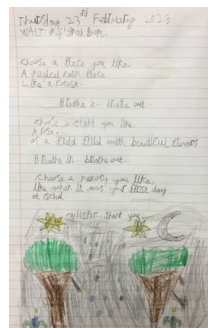 Thursday 23rd February 2023
WALT
Choose a place you like
A magical calm place
Like a forest.
Breathe in breathe out
choose a sight you like
A
or a field filled with beautiful flowers
Breathe in breathe out
Choose a memory you like
like when it was your first day
at
whisper thank you